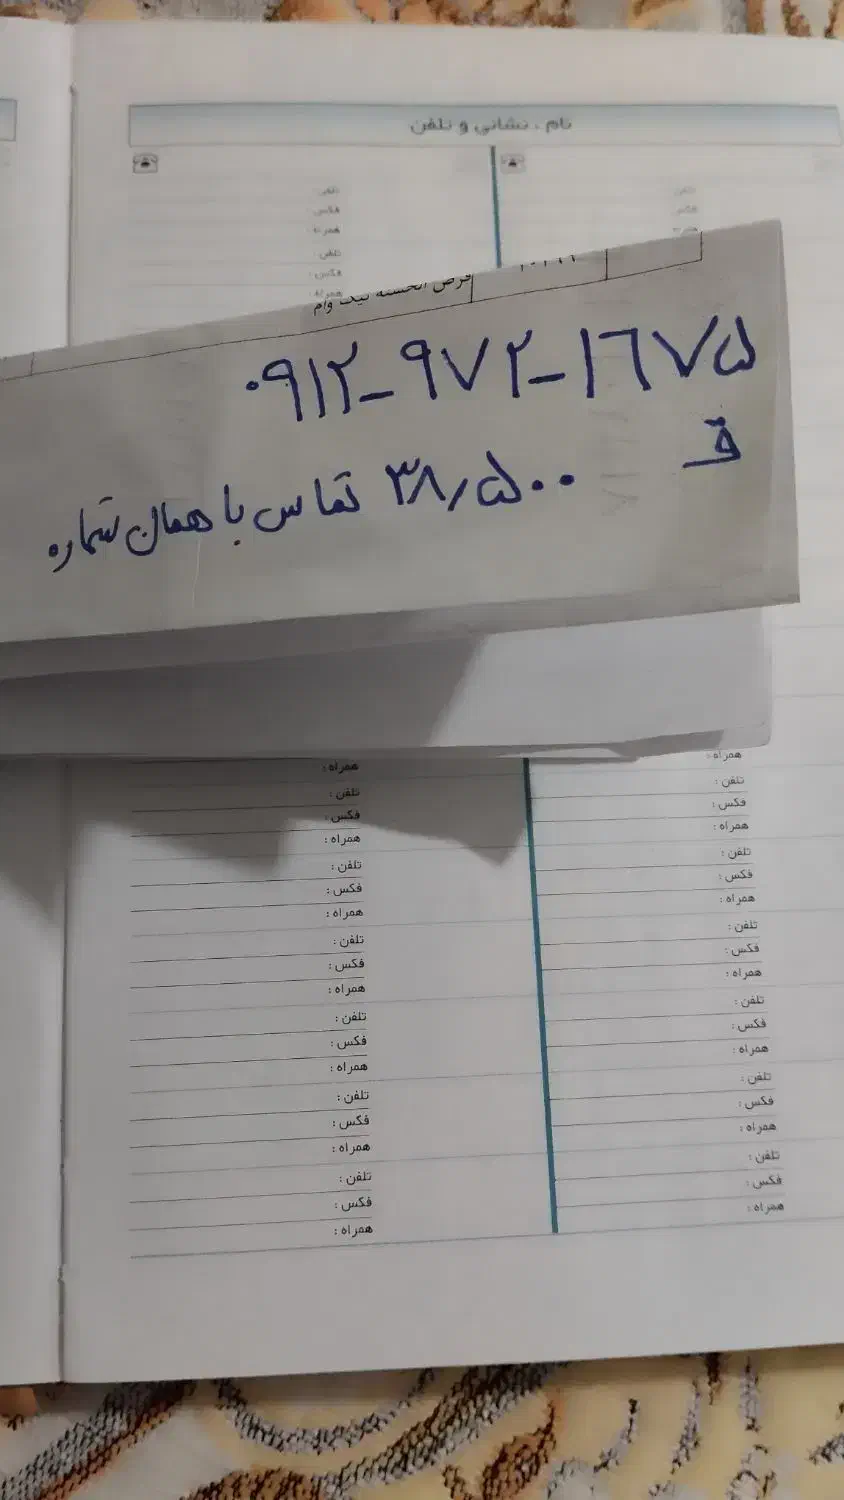 نام ، نشانی و تلفن
تلفن
فکس
همراه
تلفن
فکس
همراه
تلفن
فکس
قرض الحسنه نیک وام
۰۹۱۲-۹۷۲-۱۶۷۵
ق
۳۸٫۵۰۰ تماس با همان شماره
همراه:
تلفن :
فکس :
همراه :
تلفن :
فکس :
همراه :
تلفن :
فکس :
همراه :
تلفن :
فکس :
همراه :
تلفن :
فکس :
همراه :
تلفن :
فکس :
همراه :
همراه :
تلفن :
فکس :
همراه :
تلفن :
فکس :
همراه :
تلفن :
فکس :
همراه :
تلفن :
فکس :
همراه :
تلفن :
فکس :
همراه :
تلفن :
فکس :
همراه :